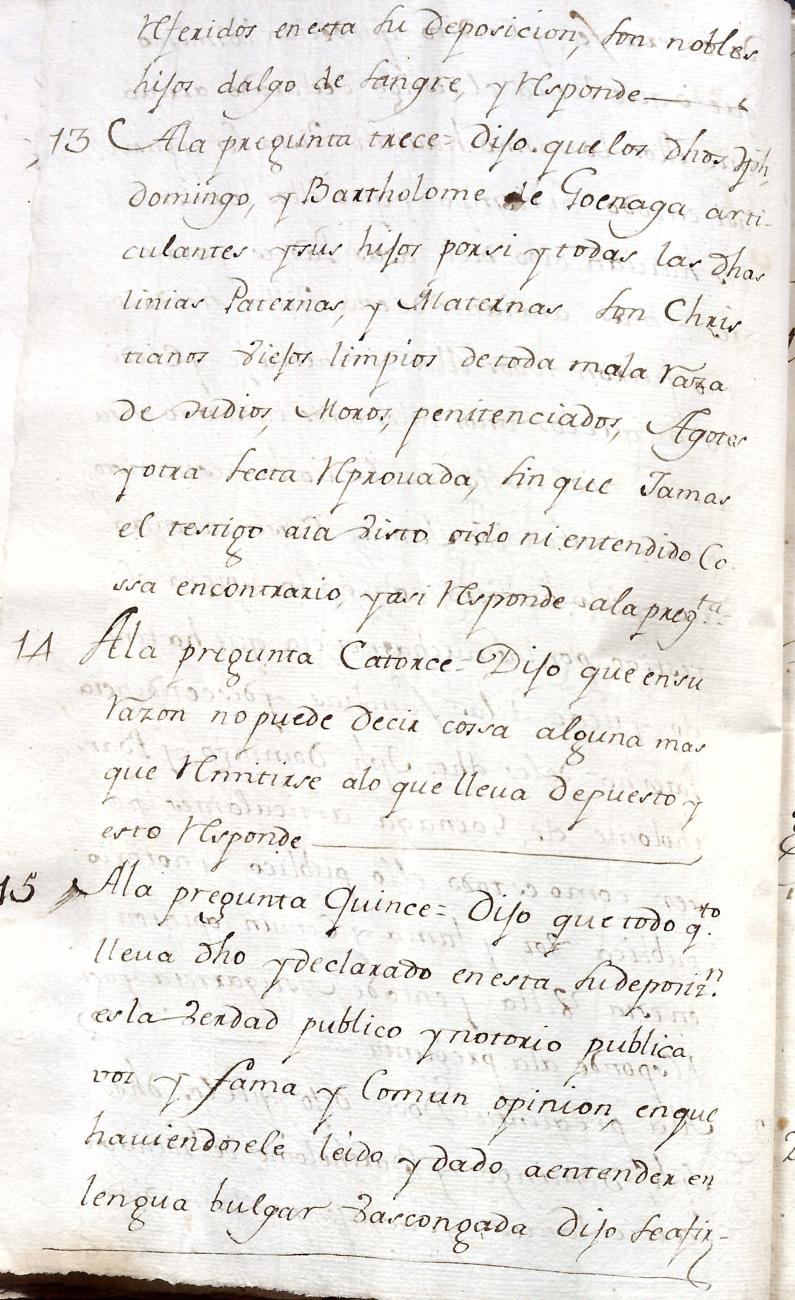 Rferidos en esta su deposicion, son nobles
hijos dalgo de sangre, y Rsponde
13 Ala pregunta trece = Dijo. que los dhos Jph,
Domingo, y Bartholome de Goenaga arti-
culantes ysus hijos porsi y todas las dhas
linias Paternas, y Maternas son Chris
tianos viejos limpios de toda mala raza
de Judios, Moros, penitenciados, Agotes
yotra secta Rprouada, sin que Jamas
el testigo aia visto oido ni entendido Co
ssa encontrario, yasi Rsponde ala preg.ta
14 Ala pregunta Catorce = Dijo que ensu
razon nopuede Decir cossa alguna mas
que Rmitirse alo que lleva Depuesto y
esto Rsponde
15 Ala pregunta Quince = Dijo que todo q.to
lleva dho ydeclarado en esta su deposiz.n
es la verdad publico ynotorio publica
voz y fama y Comun opinion, en que
haviendosele leido y dado aentender en
lengua bulgar vascongada Dijo seafir-